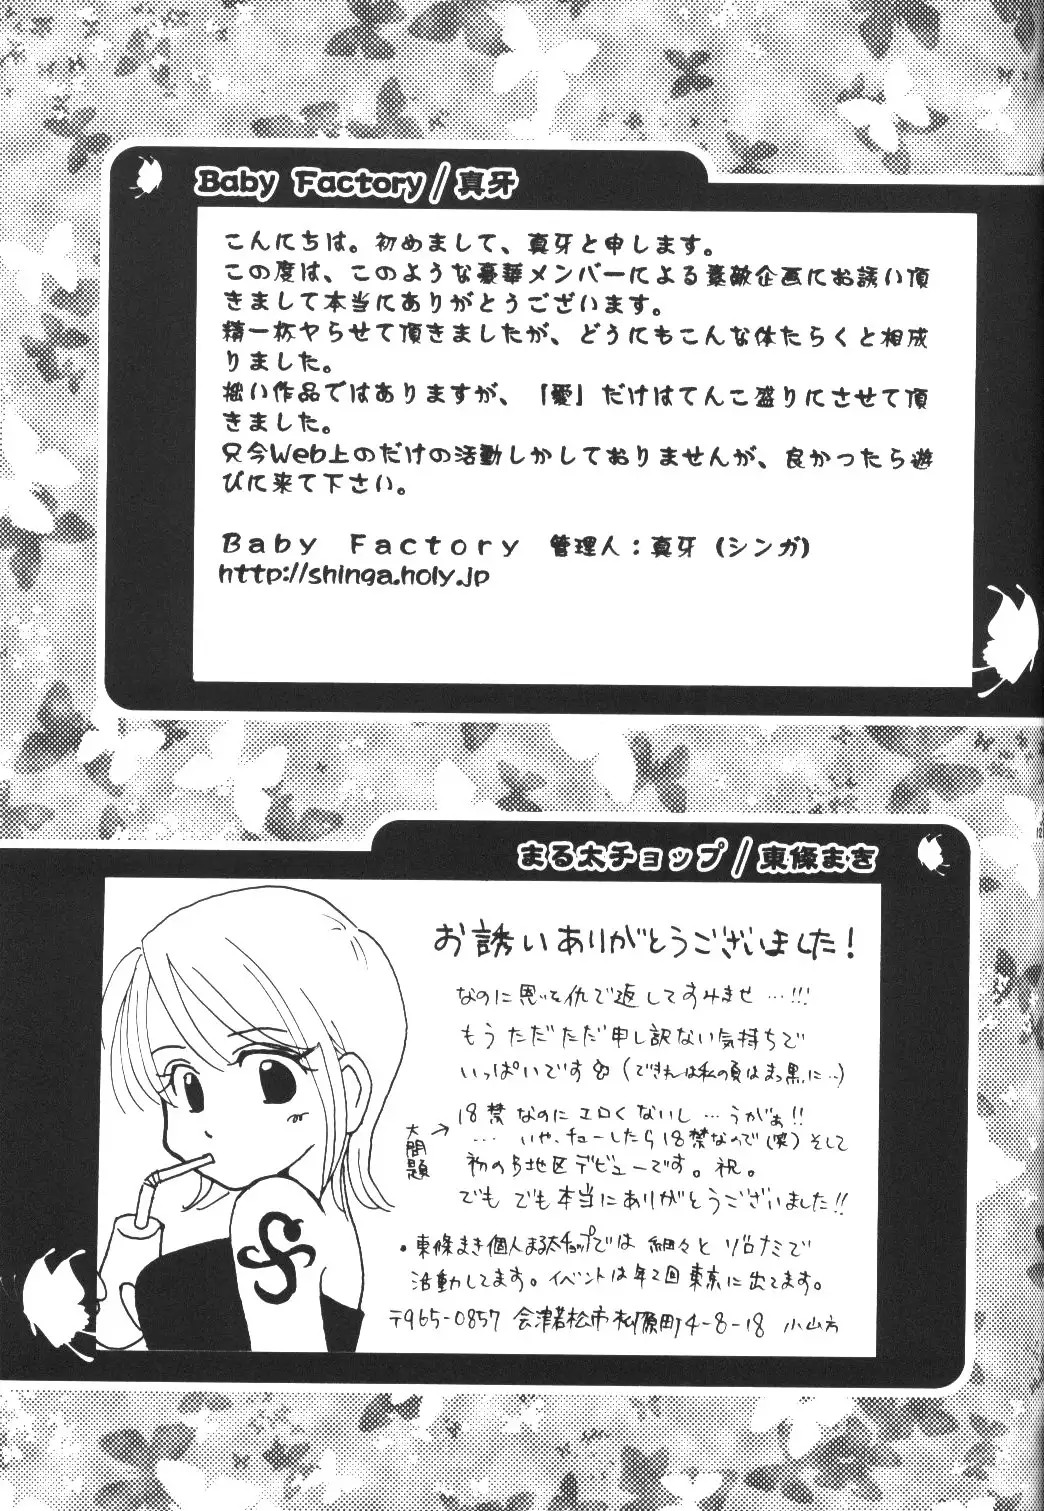 Baby Factory/真牙
こんにちは。初めまして、真牙と申します。
この度は、このような豪華メンバーによる素敵企画にお誘い頂
きまして本当にありがとうございます。
精一杯ヤらせて頂きましたが、どうにもこんな体たらくと相成
りました。
拙い作品ではありますが、「愛」だけはてんこ盛りにさせて頂
きました。
只今Web上のだけの活動しかしておりませんが、良かったら遊
びに来て下さい。
Baby Factory 管理人:真牙(シンガ)
http://shinga.holy.jp
まる太チョップ/東條まき
お誘いありがとうございました!
なのに恩を仇で返してすみませ…!!!
もうただただ申し訳ない気持ちで
いっぱいです (できれば私の頁はまっ黒に…)
大問題→
18禁なのにエロくないし…うがぁ!!
…いや、チューしたら18禁なので(笑)そして
初のち地区デビューです。祝。
でもでも本当にありがとうございました!!
・東條まき個人まる太チョップでは細々とゾロナミで
活動してます。イベントは年2回東京に出てます。
〒965-0857 会津若松市柳原町4-8-18 小山方